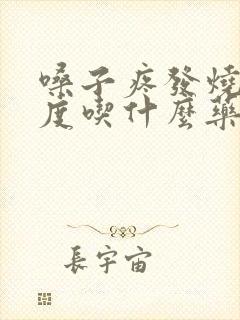 嗓子疼發燒
度喫什麼藥
長宇宙